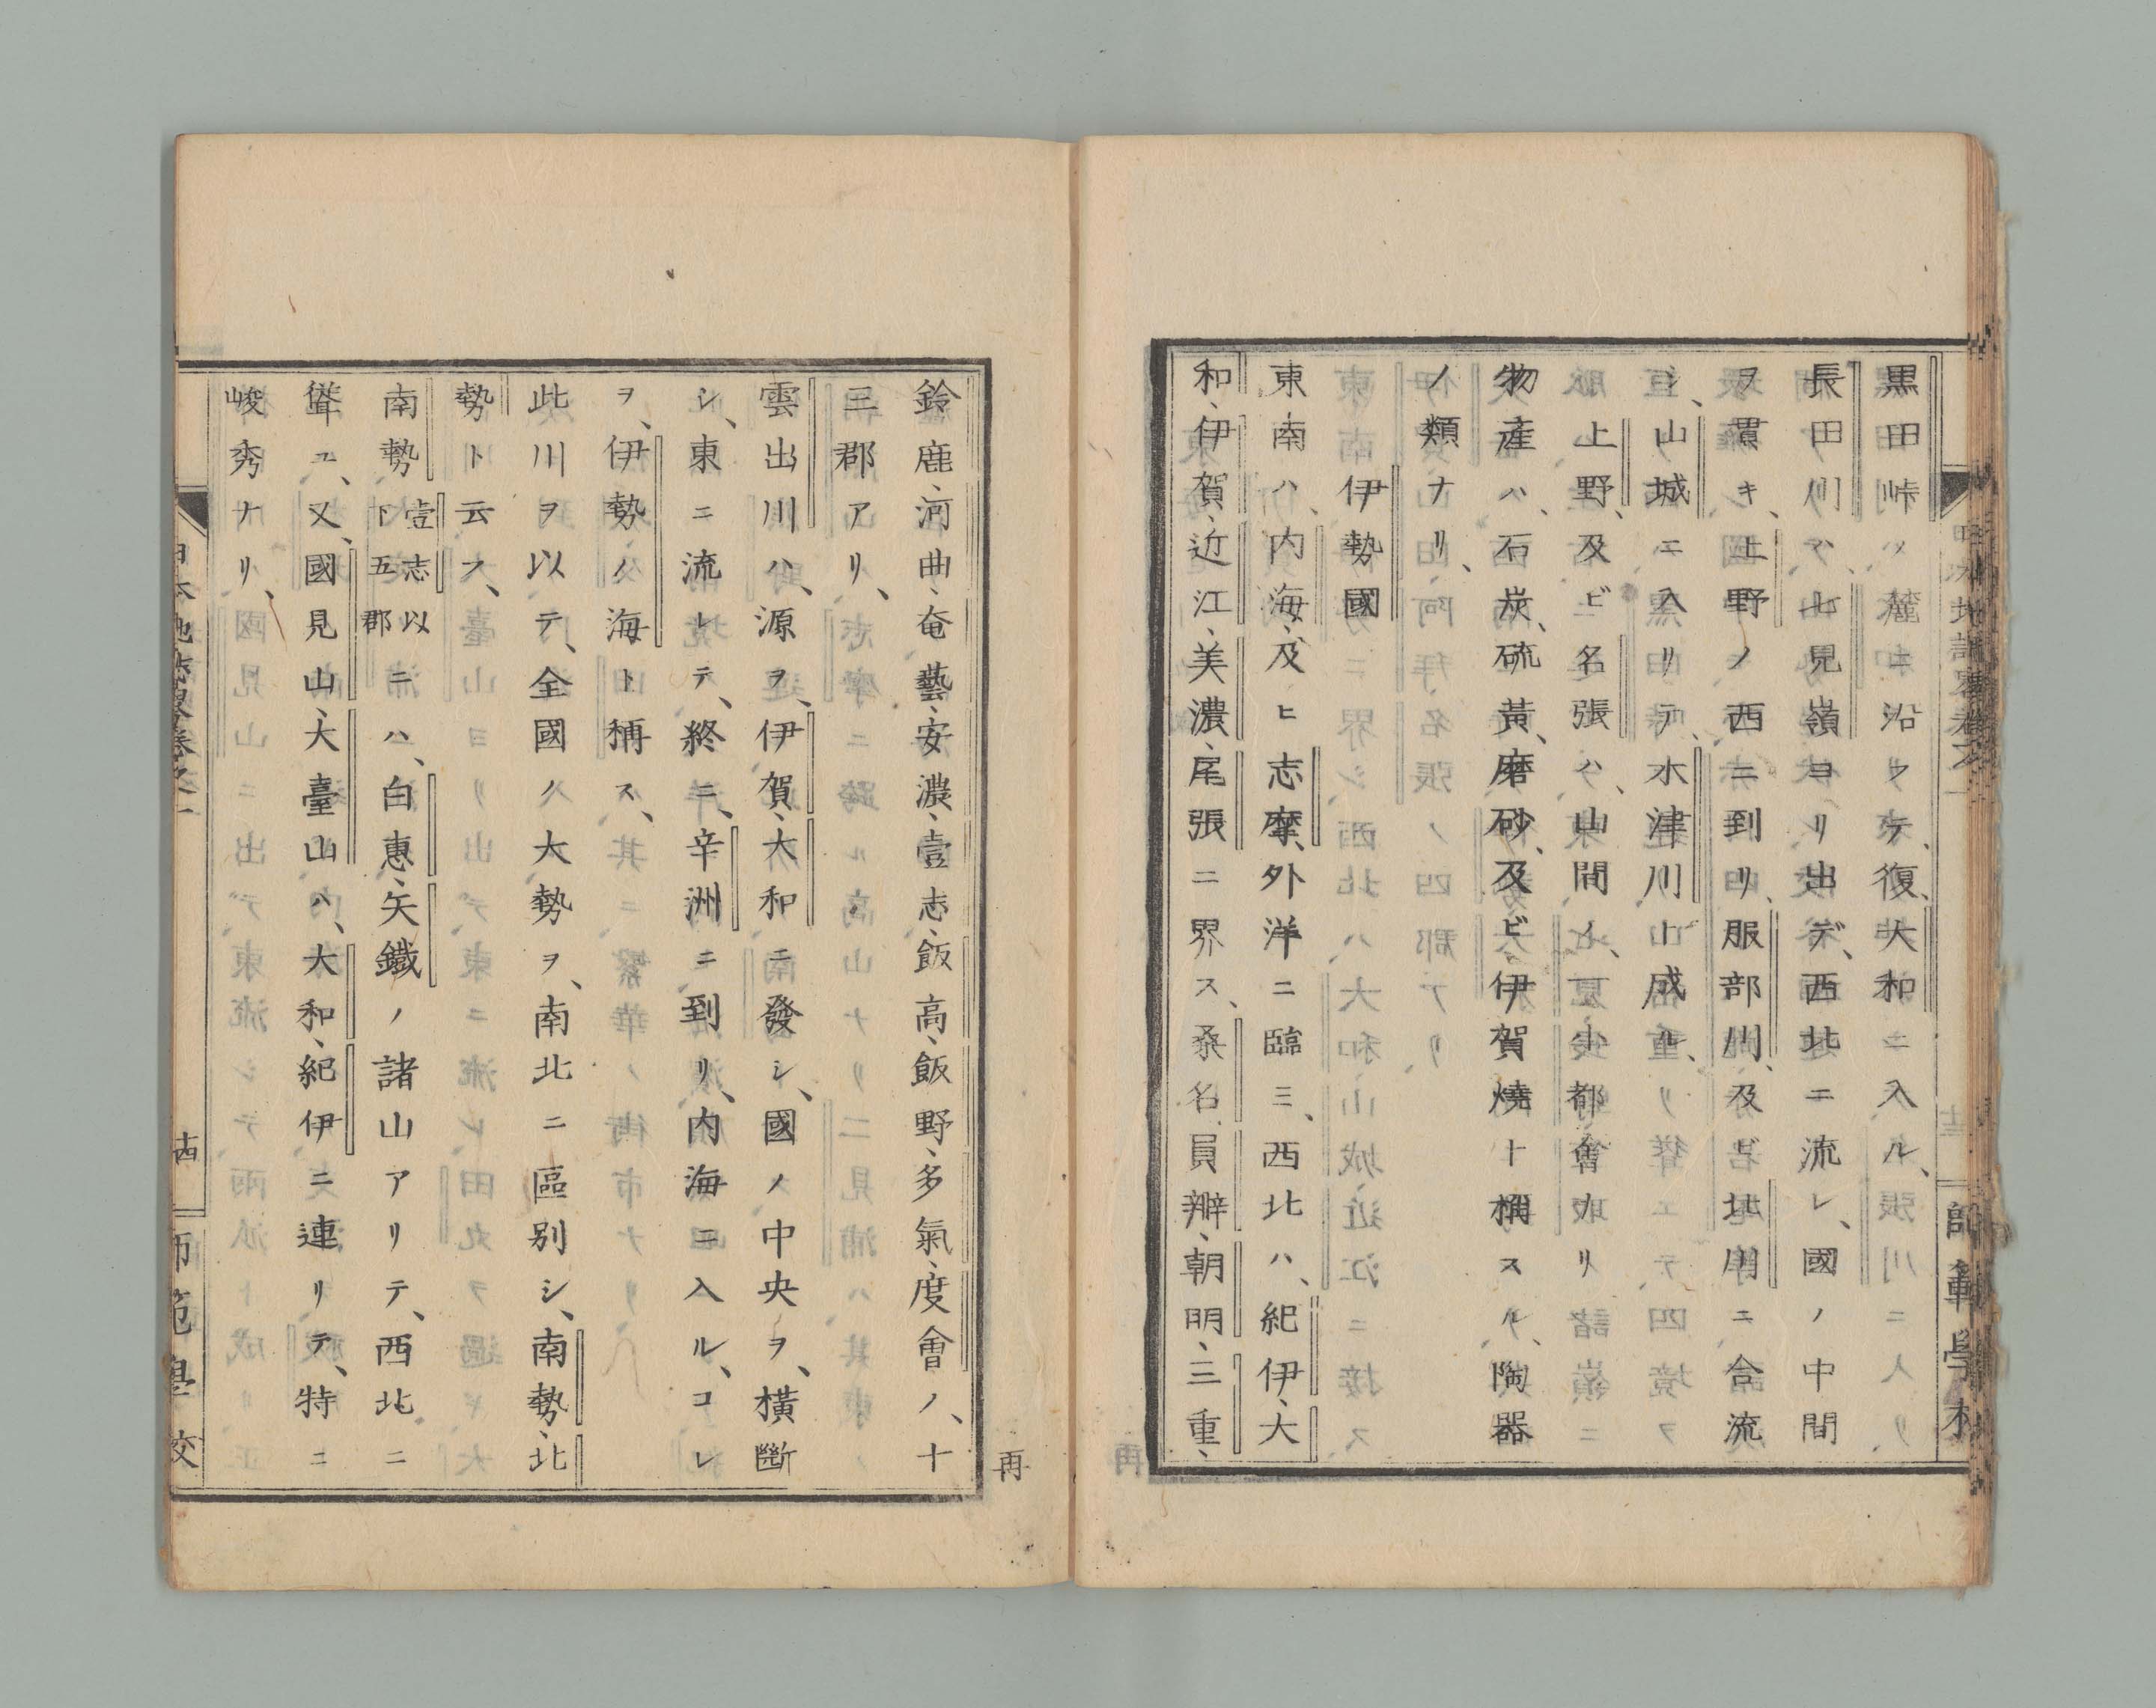 黒田峠ノ麓ニ沿フテ、復大和ニ入ル、
長田川ハ、七見嶺ヨリ出デ、西北ニ流レ、國ノ中間
ヲ貫キ、上野ノ西ニ到リ、服部川、及ビ北川ニ合流
シ、山城ニ入リテ、木津川ト成ル、
上野、及ビ名張ハ、山間ノ、小都會ナリ
物産ハ、石炭、硫黃、磨砂、及ビ伊賀燒ト稱スル、陶器
ノ類ナリ、
伊勢國
東南ハ、内海、及ヒ志摩、外洋ニ臨ミ、西北ハ、紀伊、大
和、伊賀、近江、美濃、尾張ニ界ス、桑名、員辨、朝明、三重、
鈴鹿、河曲、奄藝、安濃、壹志、飯高、飯野、多氣、度會ノ、十
三郡アリ、
雲出川ハ、源ヲ、伊賀、大和ニ發シ、國ノ中央ヲ、橫斷
シ、東ニ流レテ、終ニ、辛洲ニ到リ、内海ニ入ル、コレ
ヲ、伊勢ノ海ト稱ス、
此川ヲ以テ、全國ノ大勢ヲ、南北ニ區別シ、南勢、北
勢ト云フ、
南勢壹志以下五郡ニハ、白惠、矢鐵ノ諸山アリテ、西北ニ
聳ユ、又、國見山、大臺山ハ、大和、紀伊ニ連リテ、特ニ
峻秀ナリ、
師範學校
再